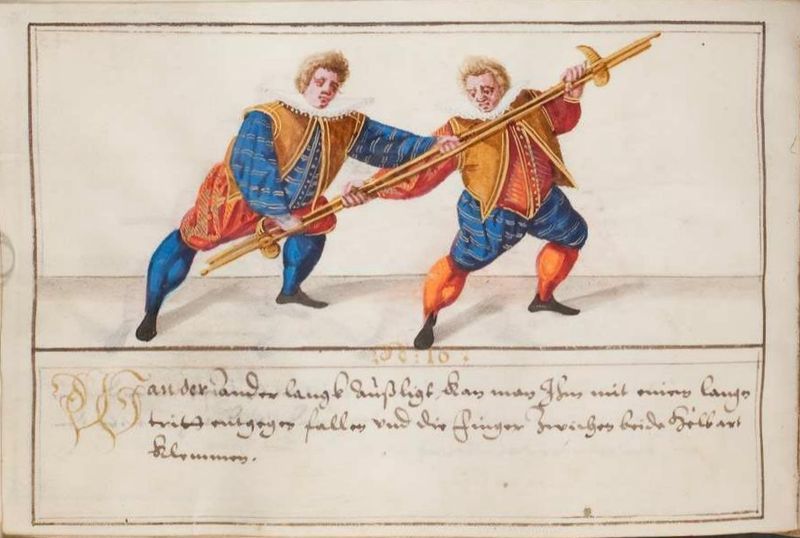 No: 10:
Wan der ander langk außligt kan man Ihm mit einem langn
tritt entgegen fallen vnd die finger Zwichen beide Helbart
klemmen.